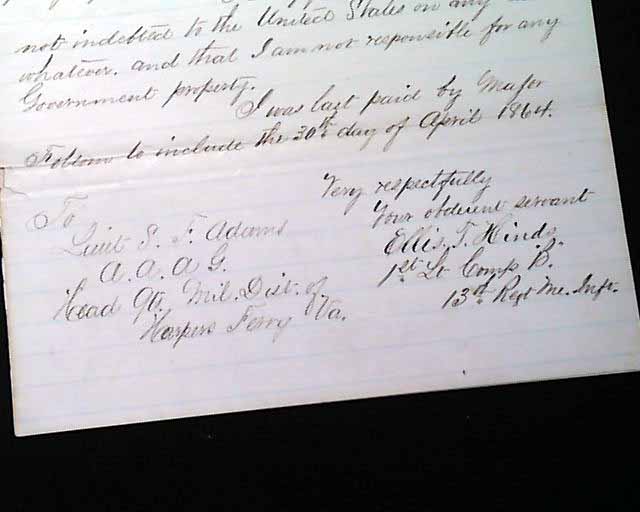 not indebted to the United States on any
whatever. and that I am not responsible for any
Government property.
I was last paid by Major
to include the 30th day of April 1864.
Very respectfully
Your obdient servant
Ellis, T. Hinds.
1st Lt Comp B.
13th Regt Me. Inft.
To
Lieut S. F. Adams
A. A. A G.
Head Qr. Mil. Dist. of
Harpers Ferry Va.